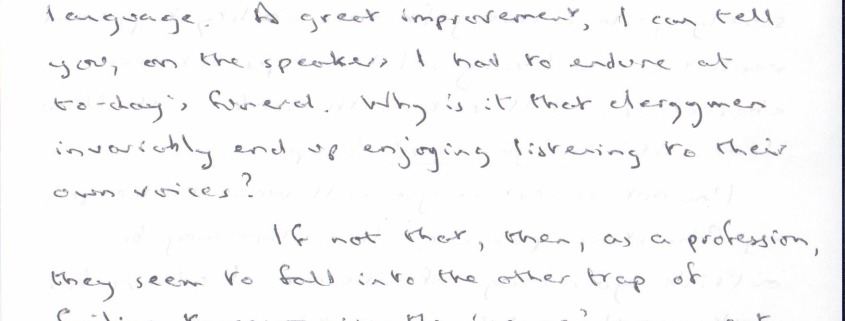 language. A great improvement, I can tell
you, on the speakers I had to endure at
to-day's funeral. Why is it that clergymen
invariably end up enjoying listening to their
own voices?
If not that, then, as a profession,
they seem to fall into the other trap of